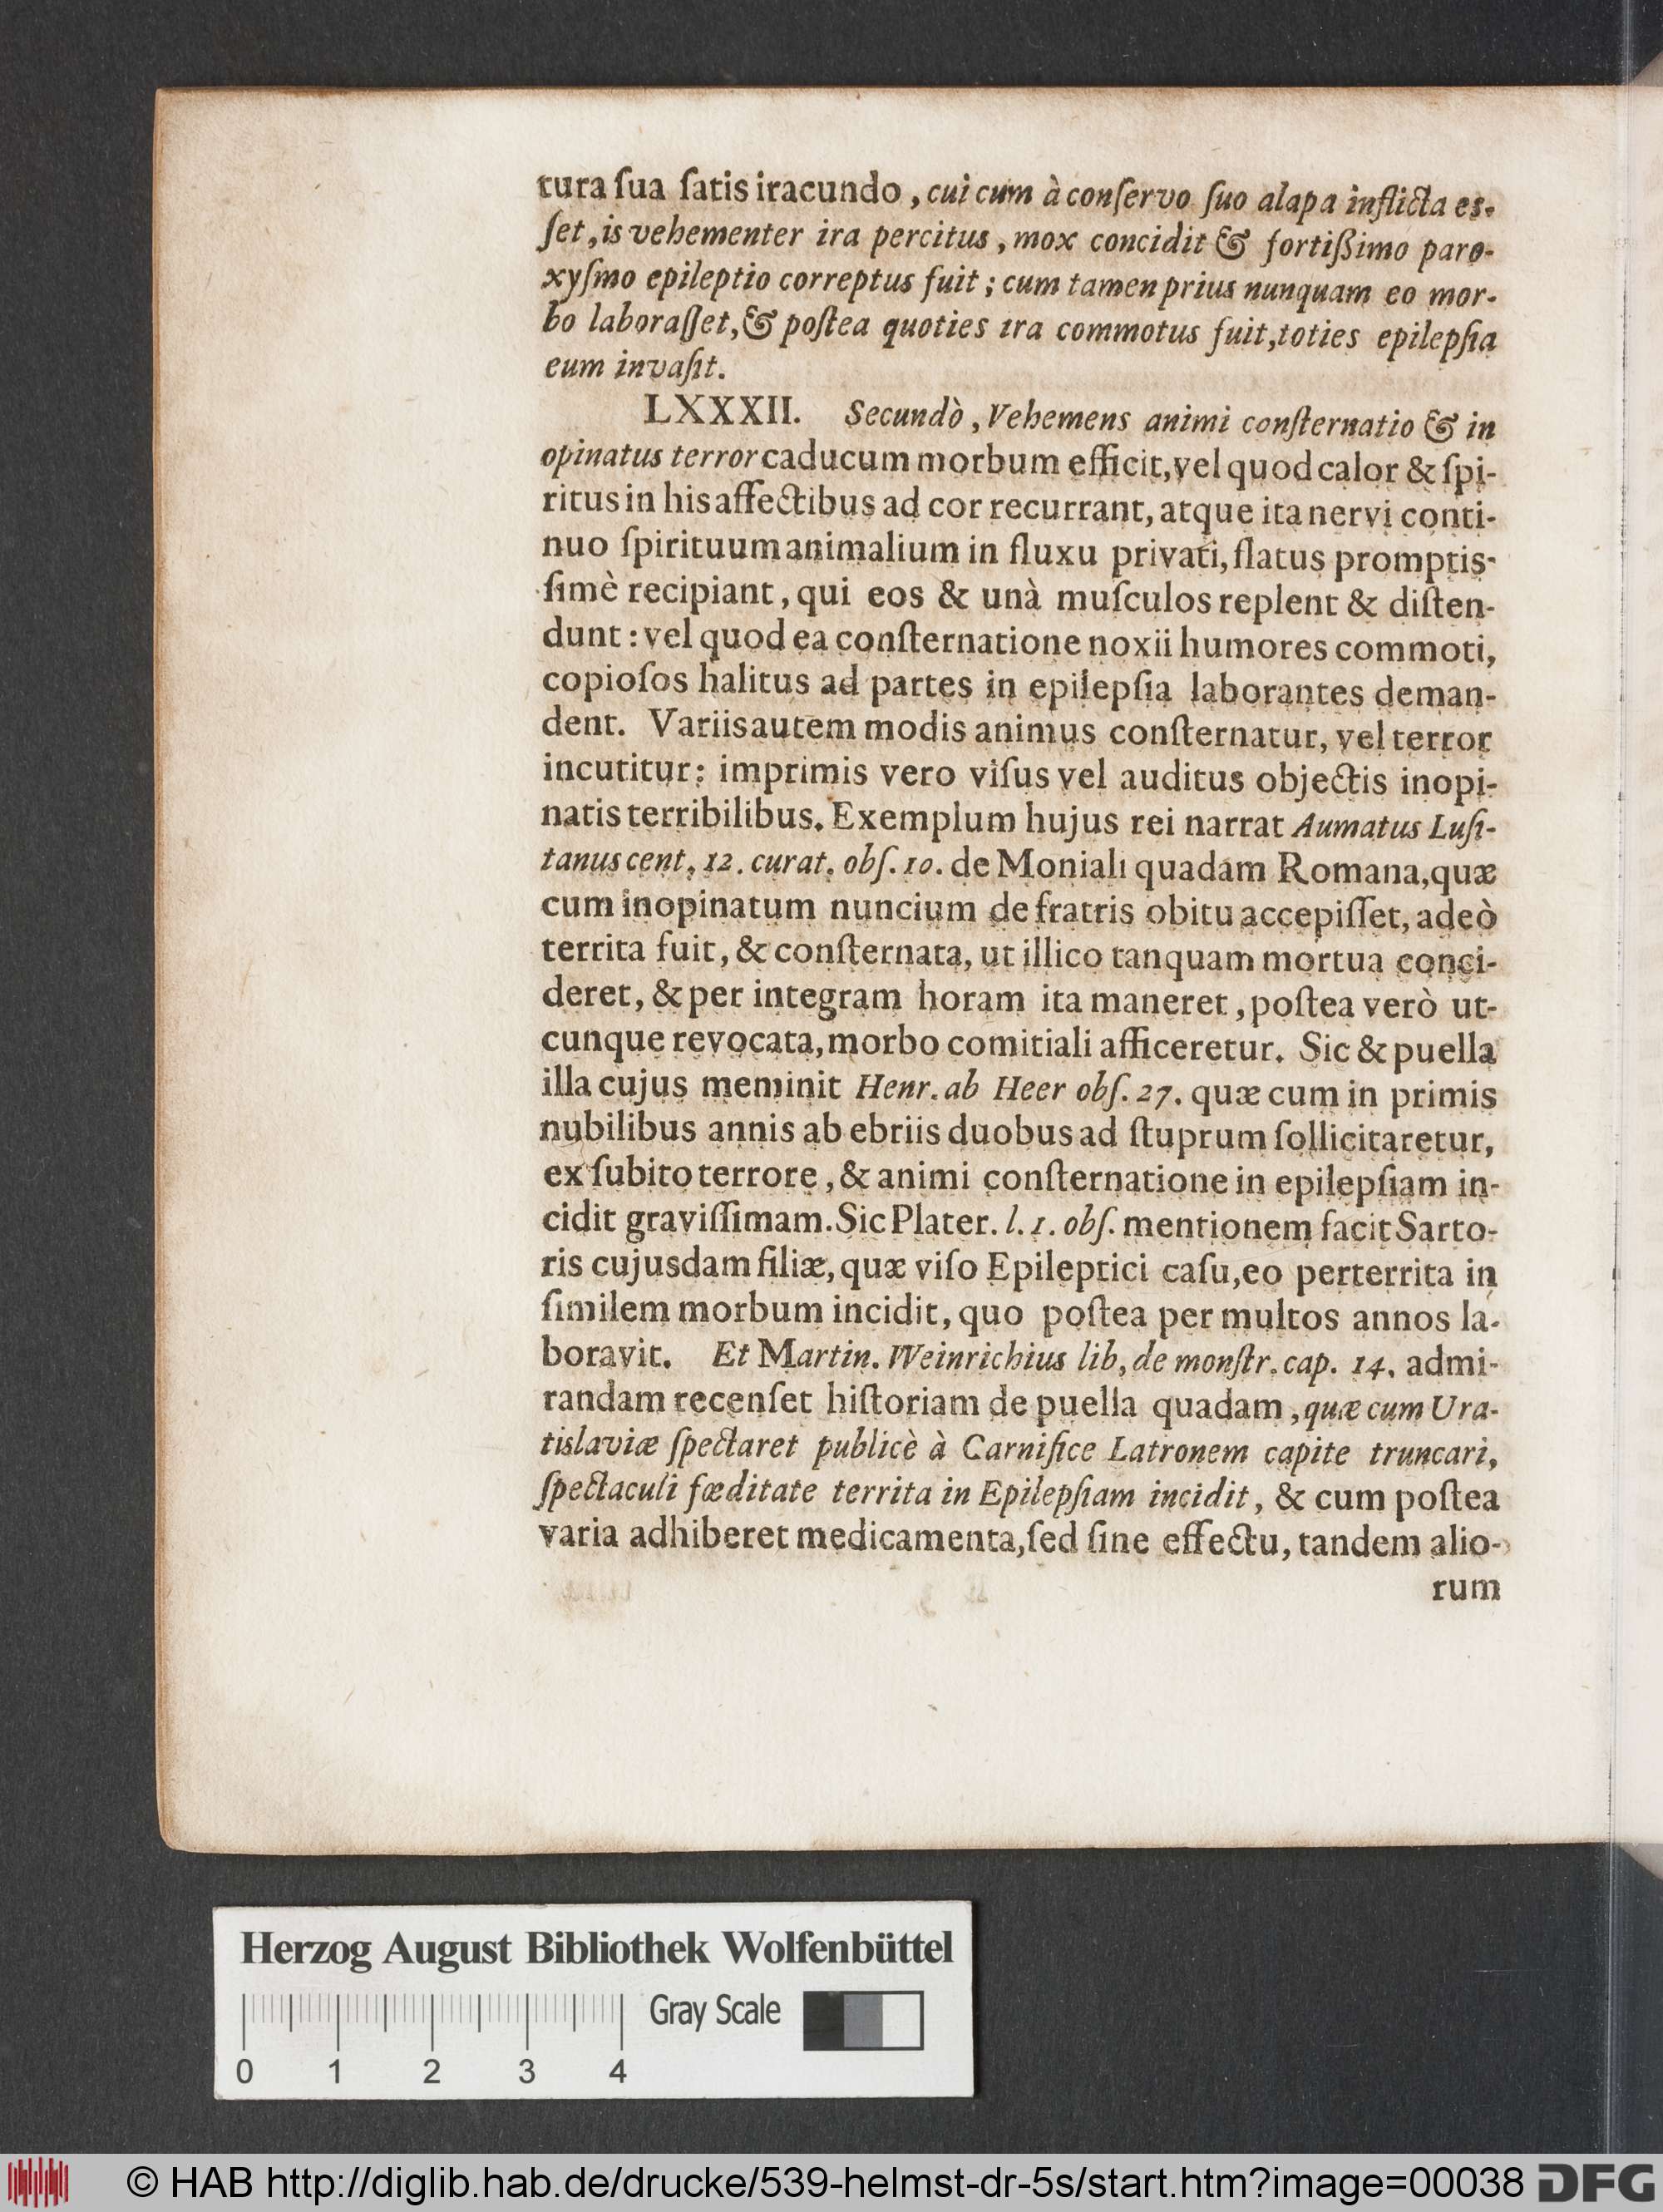 tura ſua ſatis iracundo, cui cum à conſervo ſuo alapa inflicta es-
ſet, is vehementer ira percitus, mox concidit & fortißimo paro-
xyſmo epileptio correptus fuit; cum tamen prius nunquam eo mor-
bo laboraſſet, & poſtea quoties ira commotus fuit, toties epilepſia
eum invaſit.
LXXXII. Secundò, Vehemens animi conſternatio & in
opinatus terror caducum morbum efficit, vel quod calor & ſpi-
ritus in his affectibus ad cor recurrant, atque ita nervi conti-
nuo ſpirituum animalium in fluxu privati, flatus promptis-
ſimè recipiant, qui eos & unà muſculos replent & diſten-
dunt: vel quod ea conſternatione noxii humores commoti,
copioſos halitus ad partes in epilepſia laborantes deman-
dent. Variis autem modis animus conſternatur, vel terror
incutitur: imprimis vero viſus vel auditus objectis inopi-
natis terribilibus. Exemplum hujus rei narrat Aumatus Luſi-
tanus cent. 12. curat. obſ. 10. de Moniali quadam Romana, quæ
cum inopinatum nuncium de fratris obitu accepiſſet, adeò
territa fuit, & conſternata, ut illico tanquam mortua conci-
deret, & per integram horam ita maneret, poſtea verò ut-
cunque revocata, morbo comitiali afficeretur. Sic & puella
illa cujus meminit Henr. ab Heer obſ. 27. quæ cum in primis
nubilibus annis ab ebriis duobus ad ſtuprum ſollicitaretur,
ex ſubito terrore, & animi conſternatione in epilepſiam in-
cidit graviſſimam. Sic Plater. l. 1. obſ. mentionem facit Sarto-
ris cujusdam filiæ, quæ viſo Epileptici caſu, eo perterrita in
ſimilem morbum incidit, quo poſtea per multos annos la-
boravit. Et Martin. Weinrichius lib, de monſtr. cap. 14. admi-
randam recenſet hiſtoriam de puella quadam, quæ cum Ura-
tislaviæ ſpectaret publicè à Carnifice Latronem capite truncari,
ſpectaculi fœditate territa in Epilepſiam incidit, & cum poſtea
varia adhiberet medicamenta, ſed ſine effectu, tandem alio-
rum
Herzog August Bibliothek Wolfenbüttel
Gray Scale
0 1 2 3 4
© HAB http://diglib.hab.de/drucke/539-helmst-dr-5s/start.htm?image=00038 DFG